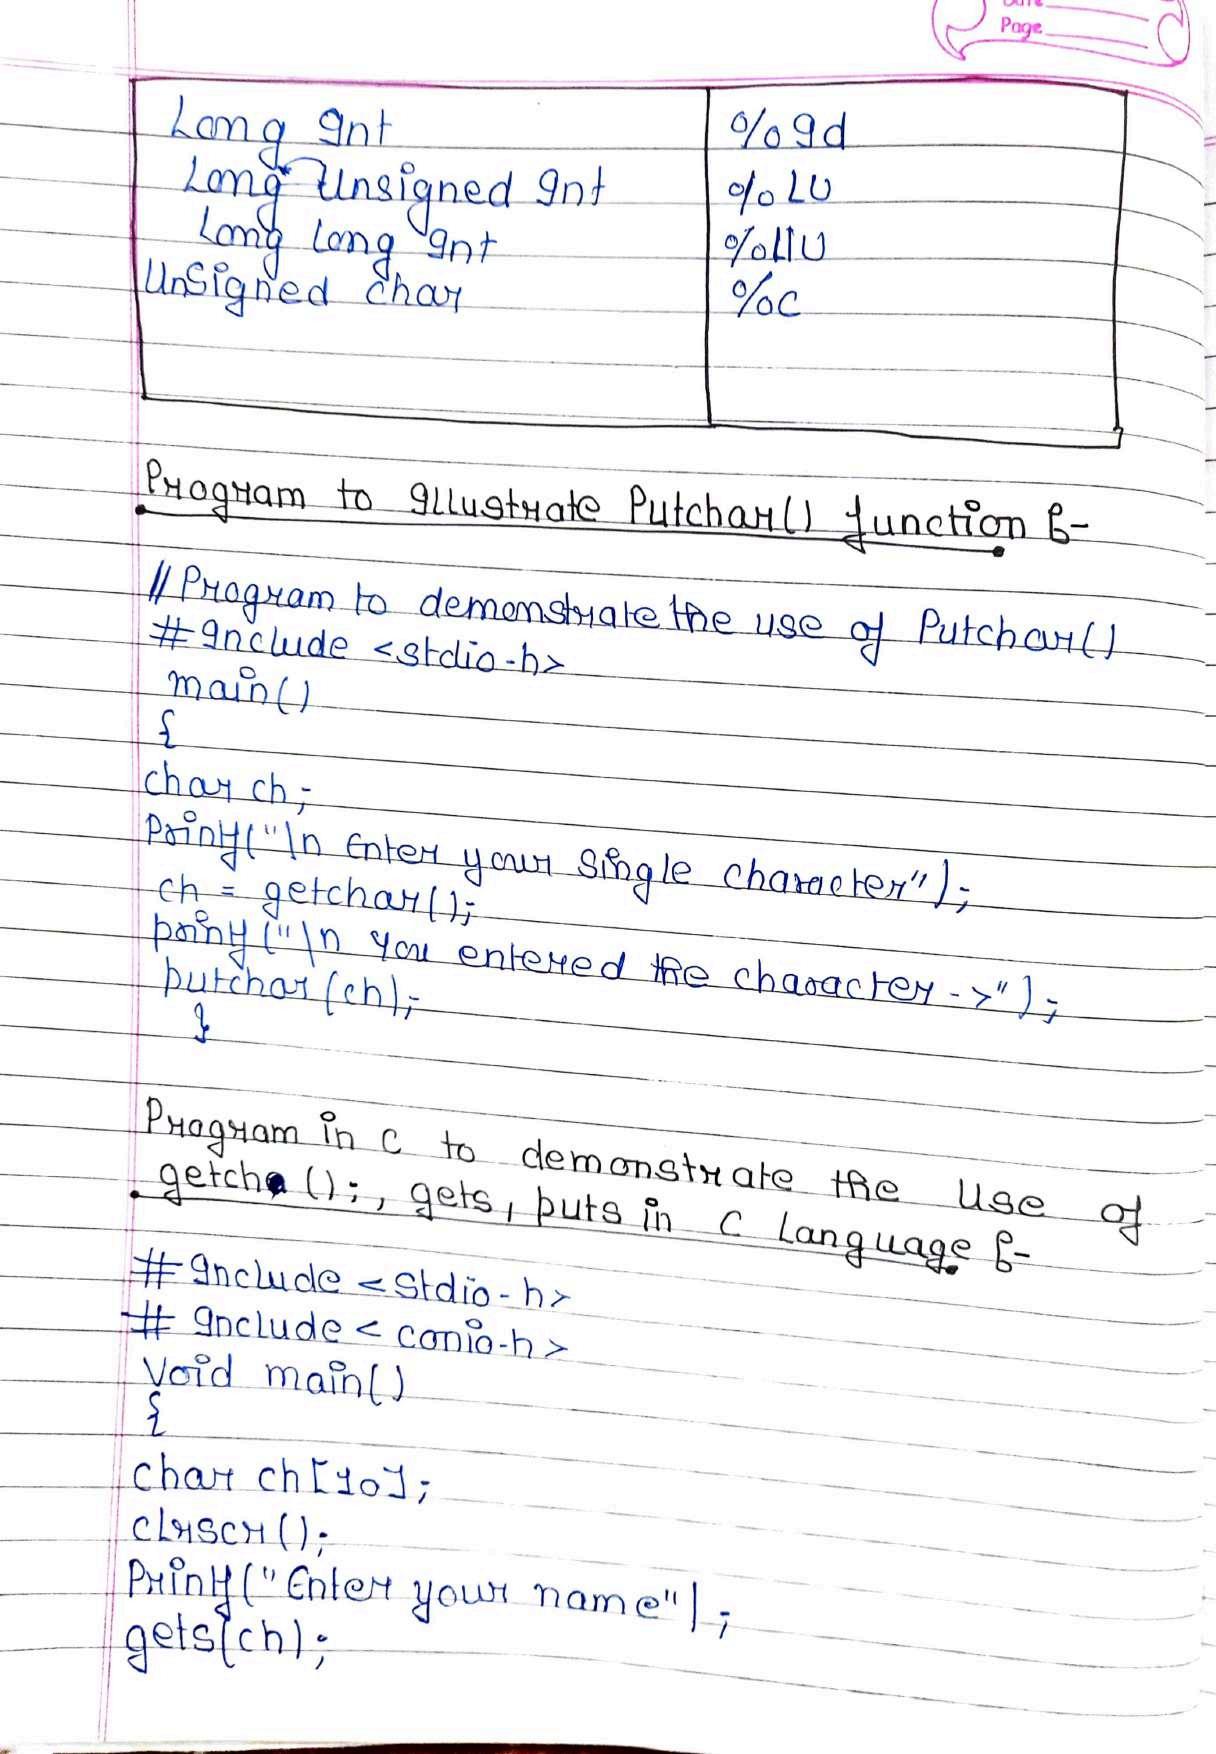 Date
Page
Long Int %Id
Long Unsigned Int %LU
Long Long Int %llU
Unsigned char %c
Program to Illustrate Putchar() function :-
// Program to demonstrate the use of Putchar()
#Include <stdio.h>
main()
{
char ch;
Printf("\n Enter your Single character");
ch = getchar();
printf("\n You entered the character->");
putchar(ch);
}
Program in C to demonstrate the Use of
getch();, gets, puts in C Language :-
#Include <Stdio.h>
# Include < conio.h>
Void main()
{
char ch[10];
clrscr();
Printf("Enter your name");
gets(ch);